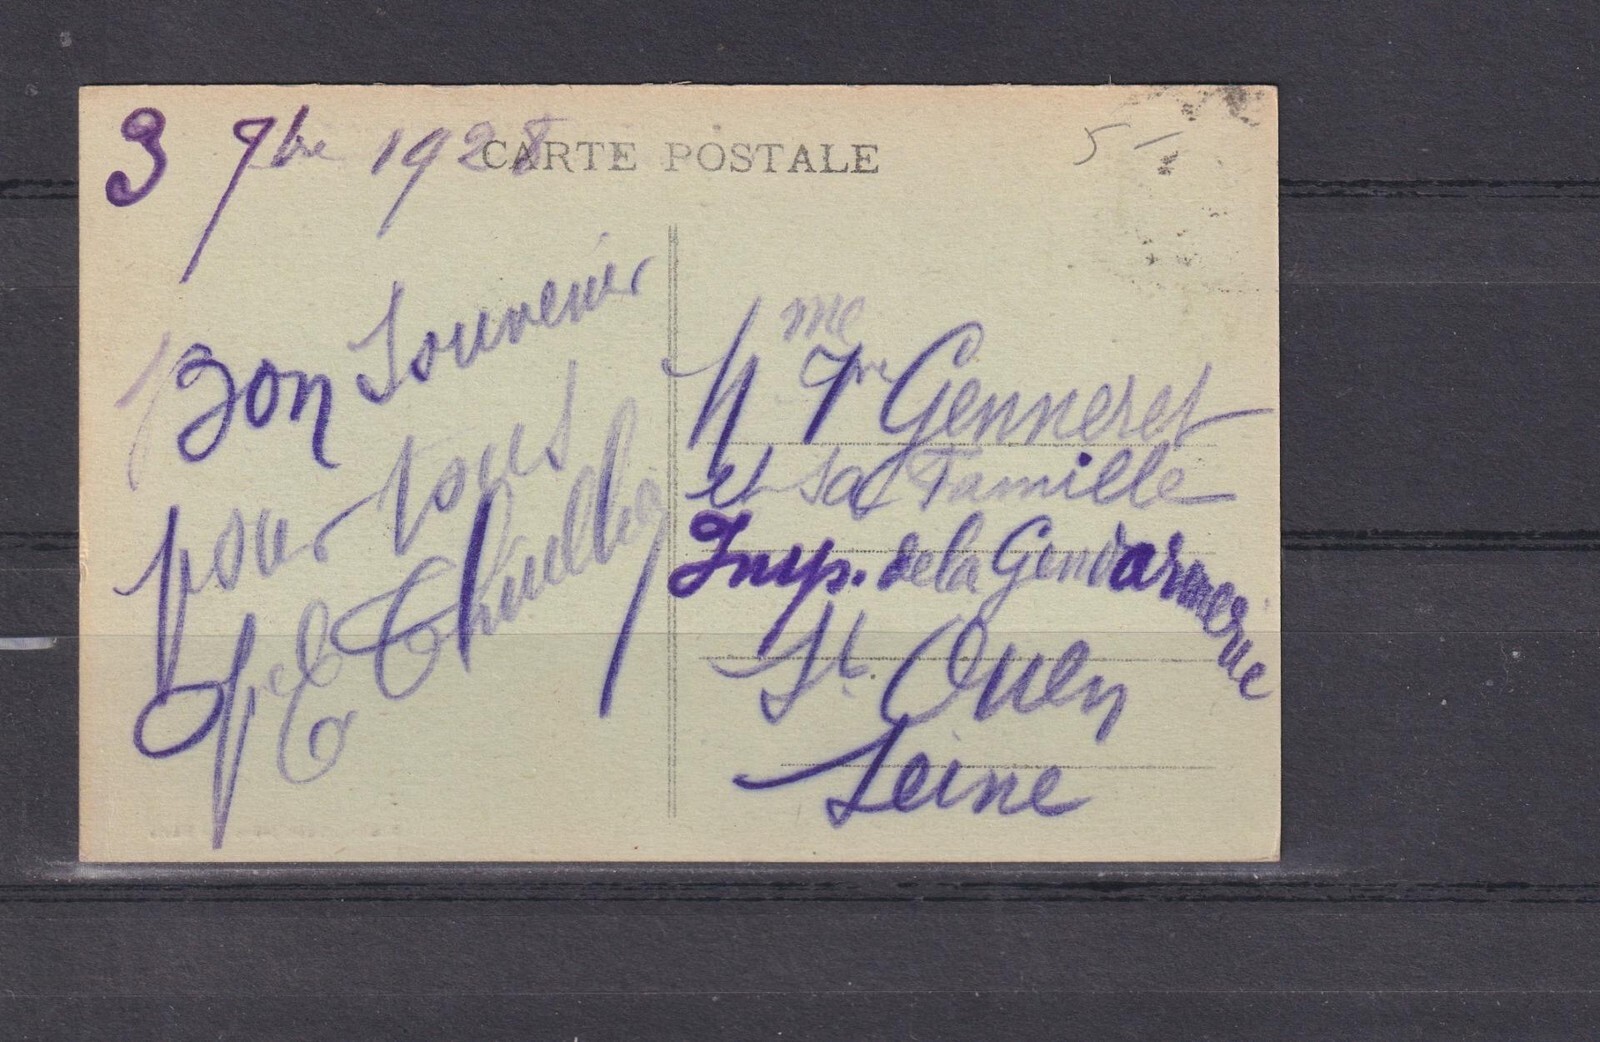 3 7bre 1928
CARTE POSTALE
5 -
Bon Souvenir
pour tous
Mme Vve Genneret
et sa Famille
Imp. de la Gendarmerie
St. Ouen
Seine